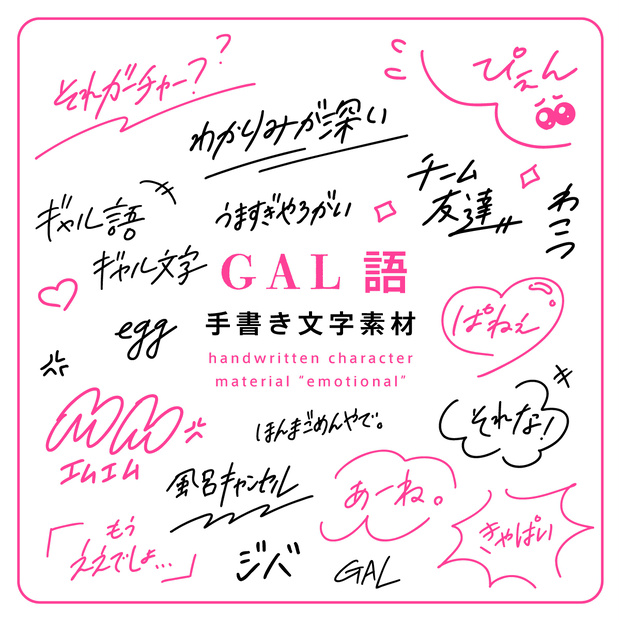 それガーチャー??
ぴえん
わかりみが深い
チーム
友達
ギャル語
うますぎやろがい
わこつ
ギャル文字
GAL 語
手書き文字素材
handwritten character
material "emotional"
egg
ぱねぇ
MM
エムエム
ほんまごめんやで。
それな!
風呂キャンセル
あーね。
「もう
ええでしょ…」
ジバ
GAL
きゃぱい